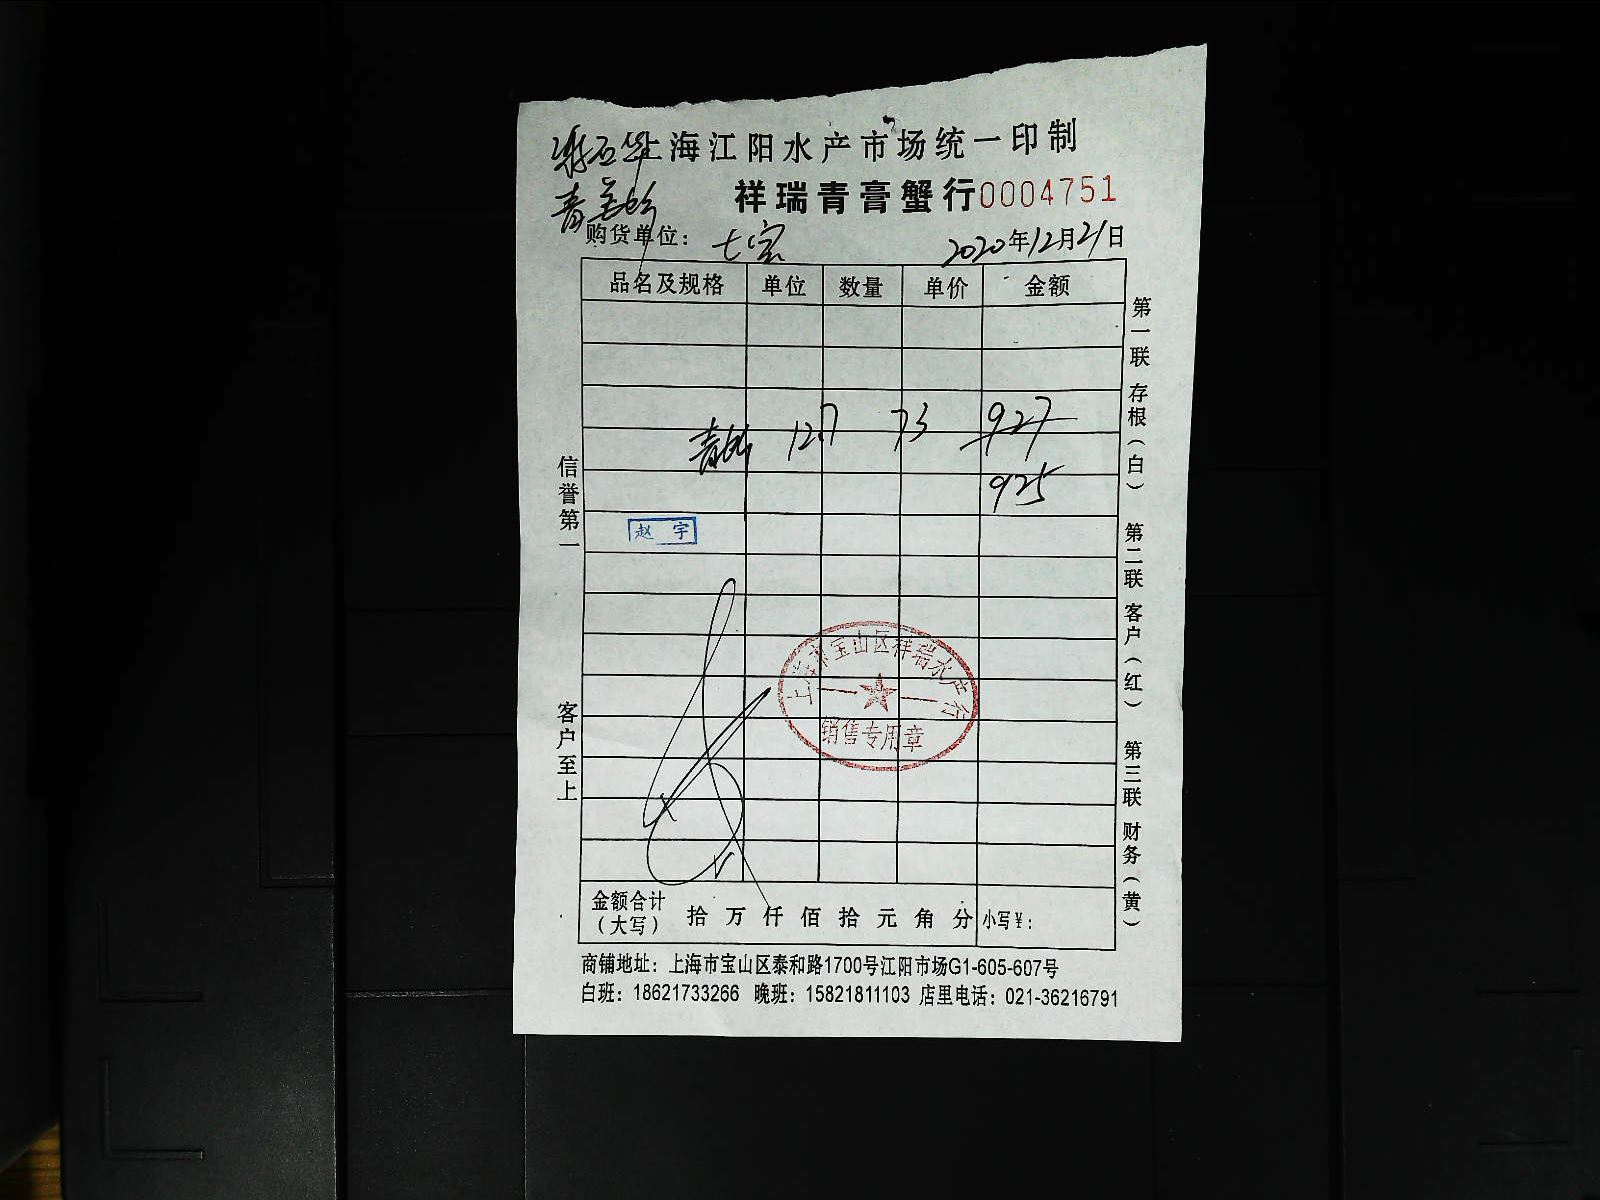 上海江阳水产市场统一印制
祥瑞青膏蟹行0004751
购货单位： 七宝 2020年12月21日
品名及规格 单位 数量 单价 金额
12.7 73 927
925
赵 宇
上海市宝山区祥瑞水产行
销售专用章
金额合计（大写） 拾 万 仟 佰 拾 元 角 分 小写¥：
信誉第一 客户至上
第一联 存根（白） 第二联 客户（红） 第三联 财务（黄）
商铺地址：上海市宝山区泰和路1700号江阳市场G1-605-607号
白班：18621733266 晚班：15821811103 店里电话：021-36216791